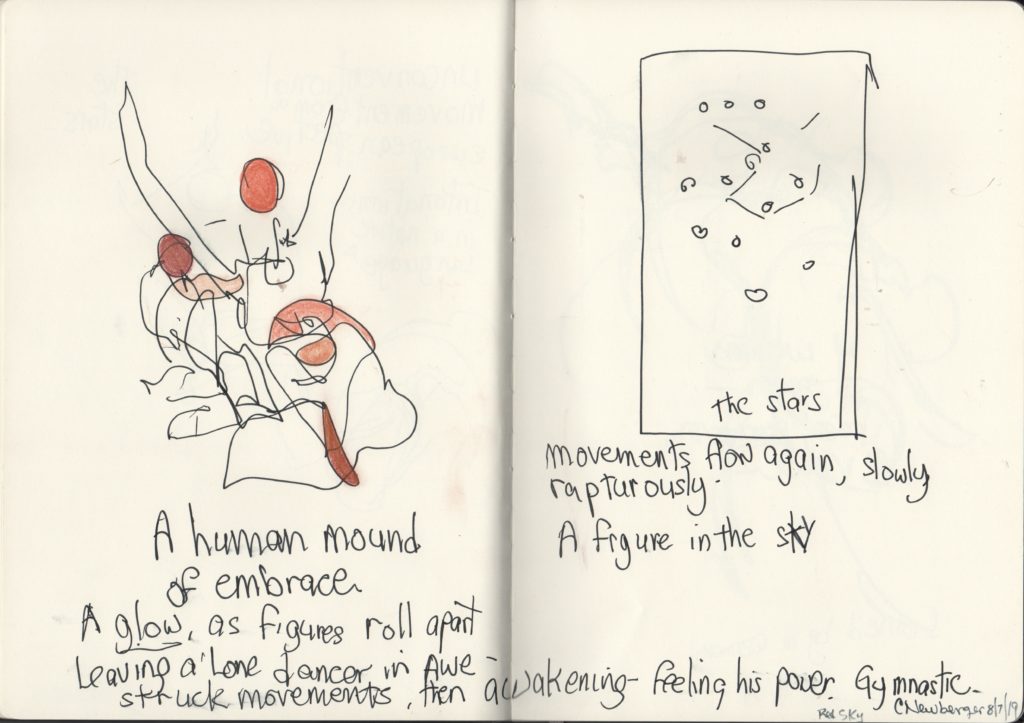 A human mound
of embrace
A glow, as figures roll apart
Leaving a Lone dancer in Awe-
struck movements, then awakening- feeling his power. Gymnastic.
the stars
movements flow again, slowly
rapturously.
A figure in the sky
Red Sky
CNewberger 8/7/19